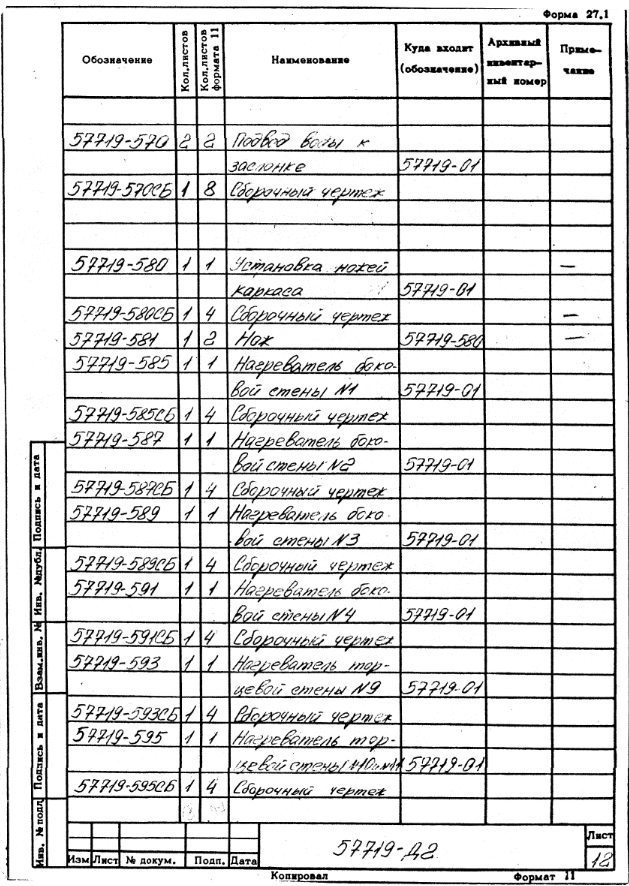 Форма 27.1
Обозначение Кол.листов Кол.листов формата 11 Наименование Куда входит (обозначение) Архивный инвентарный номер Примечание
57719-570 2 2 Подвод воды к
заслонке 57719-01
57719-570СБ 1 8 Сборочный чертеж
57719-580 1 1 Установка ножей —
каркаса 57719-01
57719-580СБ 1 4 Сборочный чертеж —
57719-581 1 2 Нож 57719-580 —
57719-585 1 1 Нагреватель боко-
вой стены N1 57719-01
57719-585СБ 1 4 Сборочный чертеж
57719-587 1 1 Нагреватель боко-
вой стены N2 57719-01
57719-587СБ 1 4 Сборочный чертеж
57719-589 1 1 Нагреватель боко-
вой стены N3 57719-01
57719-589СБ 1 4 Сборочный чертеж
57719-591 1 1 Нагреватель боко-
вой стены N4 57719-01
57719-591СБ 1 4 Сборочный чертеж
57719-593 1 1 Нагреватель тор-
цевой стены N9 57719-01
57719-593СБ 1 4 Сборочный чертеж
57719-595 1 1 Нагреватель тор-
цевой стены N10и N11 57719-01
57719-595СБ 1 4 Сборочный чертеж
Инв. № подл Подпись и дата Взам.инв. № Инв. №дубл. Подпись и дата
57719-Д2
Лист
12
Изм Лист № докум. Подп. Дата
Копировал Формат 11